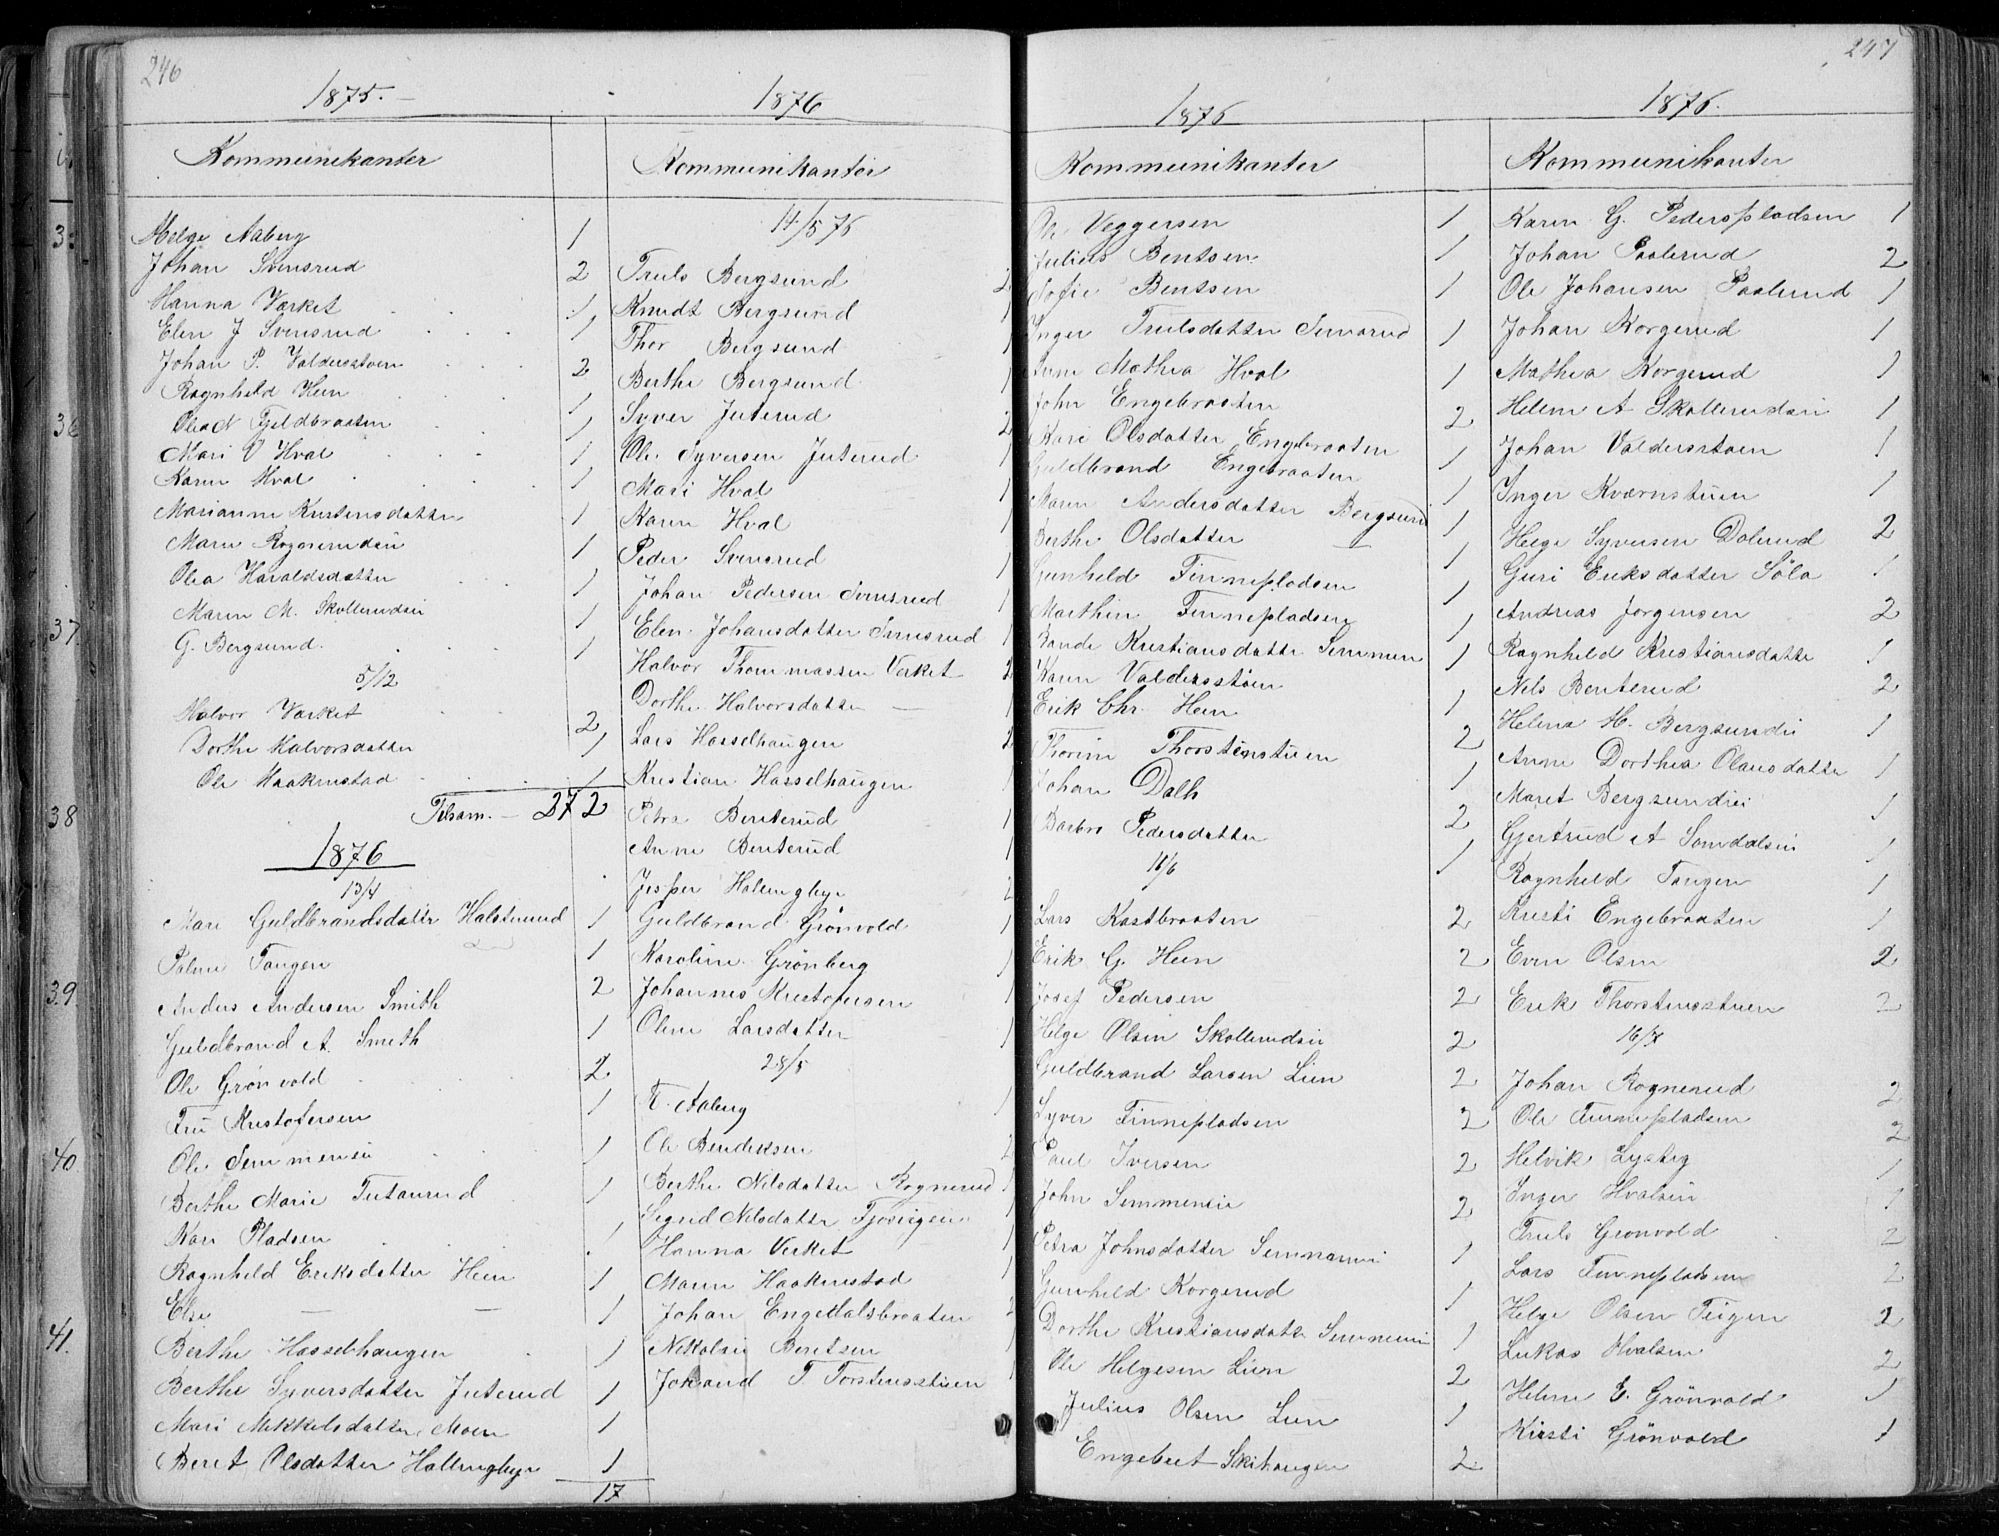 246
1875.
Kommunikanter
Helge Aaberg 1
Johan Svensrud 2
Hanna Værket 1
Elen J Svensrud 1
Johan P. Valdersstøen 2
Ragnhild Hein 1
Olea N Fjeldbraaten 1
Mari O Hval 1
Karen Hval 1
Marianne Kristensdatter 1
Maren Rognerudei 1
Olea Haraldsdatter 1
Maren M. Skollerudei 1
G. Bergsund. 1
5/12
Halvor Værket 2
Dorthe Halvorsdatter 1
Ole Haakenstad 1
Tilsam. - 272
1876
13/4
Mari Guldbrandsdatter Halsterud 1
Paline Tangen 1
Anders Andersen Smith 2
Guldbrand A. Smith 1
Ole Grönvold 2
Fru Kristofersen 1
Ole Semmenei 1
Berthe Marie Tutanrud 1
Kari Pladsen 1
Ragnhild Eriksdatter Hein 1
Else — — 1
Berthe Hasselhaugen 1
Berthe Syversdatter Juterud 1
Mari Mikkelsdatter Moen 1
Beret Olsdatter Hallingbye 1
17
1876
Kommunikanter
14/5 76
Truls Bergsund 2
Knudt Bergsund 1
Thor Bergsund 1
Berthe Bergsund 1
Syver Juterud 2
Ole Syversen Juterud 1
Mari Hval 1
Karen Hval 1
Peder Svensrud 1
Johan Pedersen Svensrud 1
Elen Johansdatter Svensrud 1
Halvor Thommassen Verket 2
Dorthe Halvorsdatter — 1
Lars Hasselhaugen 2
Kristian Hasselhaugen
Petra Benterud 1
Anne Benterud 1
Jesper Halingbye 2
Guldbrand Grönvold 1
Karoline Grönberg 1
Johannes Kristofersen 1
Oline Larsdatter 1
28/5
E. Aaberg 1
Ole Bendiksen 2
Berthe Nilsdatter Rognerud 1
Sigrid Nilsdatter 1
Hanna Verket 1
Maren Haakenstad 1
Johan Engedalsbraaten 2
Nikolai Bentsen 1
Johand T Torstensstuen 1
1876
Kommunikanter
Ole Veggersen 1
Julius Bentsen 1
Sofie Bentsen 1
Inger Trulsdatter Svensrud 1
Anne Mathea Hval 1
John Engebraaten 2
Kari Olsdatter Engebraaten 1
Guldbrand Engebraaten 1
Maren Andersdatter Bergsund 1
Berthe Olsdatter — 1
Gunhild Finnepladsen 1
Marthin Finnepladsen 1
Kristiansdatter Semmen 1
Karen Valdersstøen 1
Erik Chr. Hein 2
Thorine Thorstenstuen 1
Johan Dalh 2
Barbro Pedersdatter 1
11/6
Lars Kastbraaten 2
Erik G. Hein 2
Josef Pedersen 2
Helge Olsen Skollerudei 2
Guldbrand Larsen Lien 2
Syver Finnepladsen 2
Paul Iversen 2
John Semmenei 2
Petra Johnsdatter Semmenei 1
Gunhild Korgerud 1
Dorthe Kristiansdatt Semmenei 1
Ole Helgesen Lien 2
Julius Olsen Lien 1
Engebret Skihaugen 2
247
1876.
Kommunikanter
Karen G.Ederspladsen 1
Johan Paalerud 2
Ole Johansen Paalerud 1
Johan Korgerud 1
Mathea Korgerud 1
Helene A Skollerudei 1
Johan Valdersstøen 1
Inger Kværnstuen 1
Helge Syversen Dolerud 2
Guri Eriksdatter Söla 1
Andreas Jørgensen 2
Ragnhild Kristiansdatter 1
Nils Benterud 2
Helene H. Bergsundei 1
Anne Dorthea Olausdatter 1
Maret Bergsundei 1
Gjertrud A Somdalsei 1
Ragnhild Tangen 1
Kristi Engebraaten 1
Even Olsen 2
Erik Thorstensstuen 2
16/7
Johan Rognerud 2
Ole Finnepladsen 2
Helvik 1
Inger Hvalsei 1
Truls Gronvold 2
Lars Finnepladsen 2
Helge Olsen Teigen 2
Lukas Hvalsen 2
Helene E. Grönvold 1
Kirsti Grönvold 1
36
37.
38
39.
40
41.